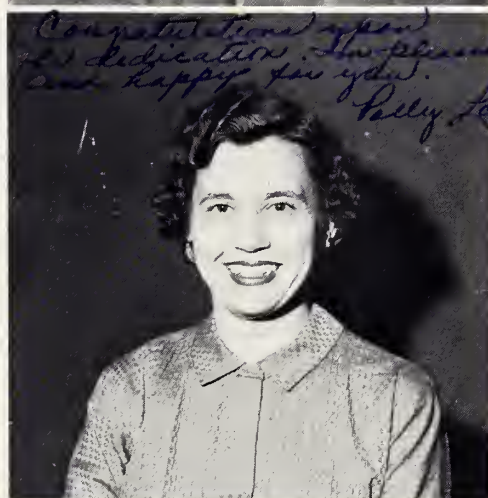 Congratulations upon
dedication. I'm pleased
and happy for you.
Polly